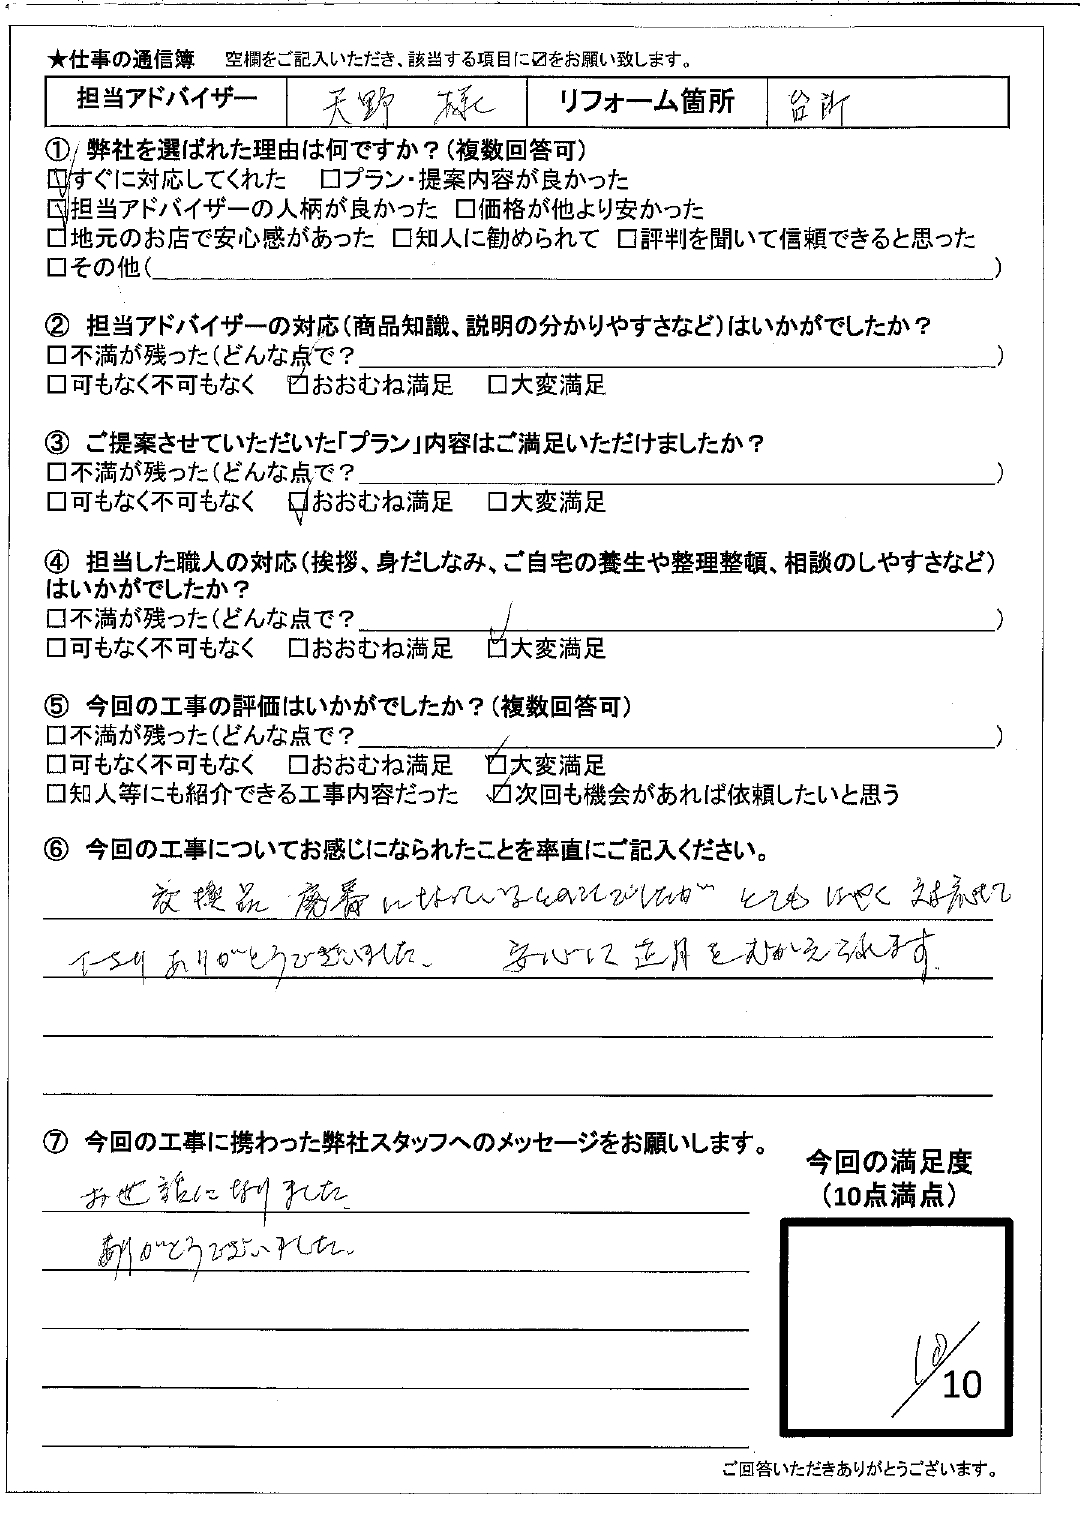 ★仕事の通信簿 空欄をご記入いただき、該当する項目に☑をお願い致します。
担当アドバイザー 天野 様 リフォーム箇所 台所
① 弊社を選ばれた理由は何ですか？(複数回答可)
☑すぐに対応してくれた □プラン・提案内容が良かった
☑担当アドバイザーの人柄が良かった □価格が他より安かった
□地元のお店で安心感があった □知人に勧められて □評判を聞いて信頼できると思った
□その他( )
② 担当アドバイザーの対応(商品知識、説明の分かりやすさなど)はいかがでしたか？
□不満が残った(どんな点で？ )
□可もなく不可もなく ☑おおむね満足 □大変満足
③ ご提案させていただいた「プラン」内容はご満足いただけましたか？
□不満が残った(どんな点で？ )
□可もなく不可もなく ☑おおむね満足 □大変満足
④ 担当した職人の対応(挨拶、身だしなみ、ご自宅の養生や整理整頓、相談のしやすさなど)
はいかがでしたか？
□不満が残った(どんな点で？ )
□可もなく不可もなく □おおむね満足 ☑大変満足
⑤ 今回の工事の評価はいかがでしたか？(複数回答可)
□不満が残った(どんな点で？ )
□可もなく不可もなく □おおむね満足 ☑大変満足
□知人等にも紹介できる工事内容だった ☑次回も機会があれば依頼したいと思う
⑥ 今回の工事についてお感じになられたことを率直にご記入ください。
交換品 廃番になっているとのことでしたが とても はやく 対応して
下さり ありがとうございました。 安心して 正月を むかえられます。
⑦ 今回の工事に携わった弊社スタッフへのメッセージをお願いします。
お世話になりました。
ありがとうございました。
今回の満足度
(10点満点)
10/10
ご回答いただきありがとうございます。